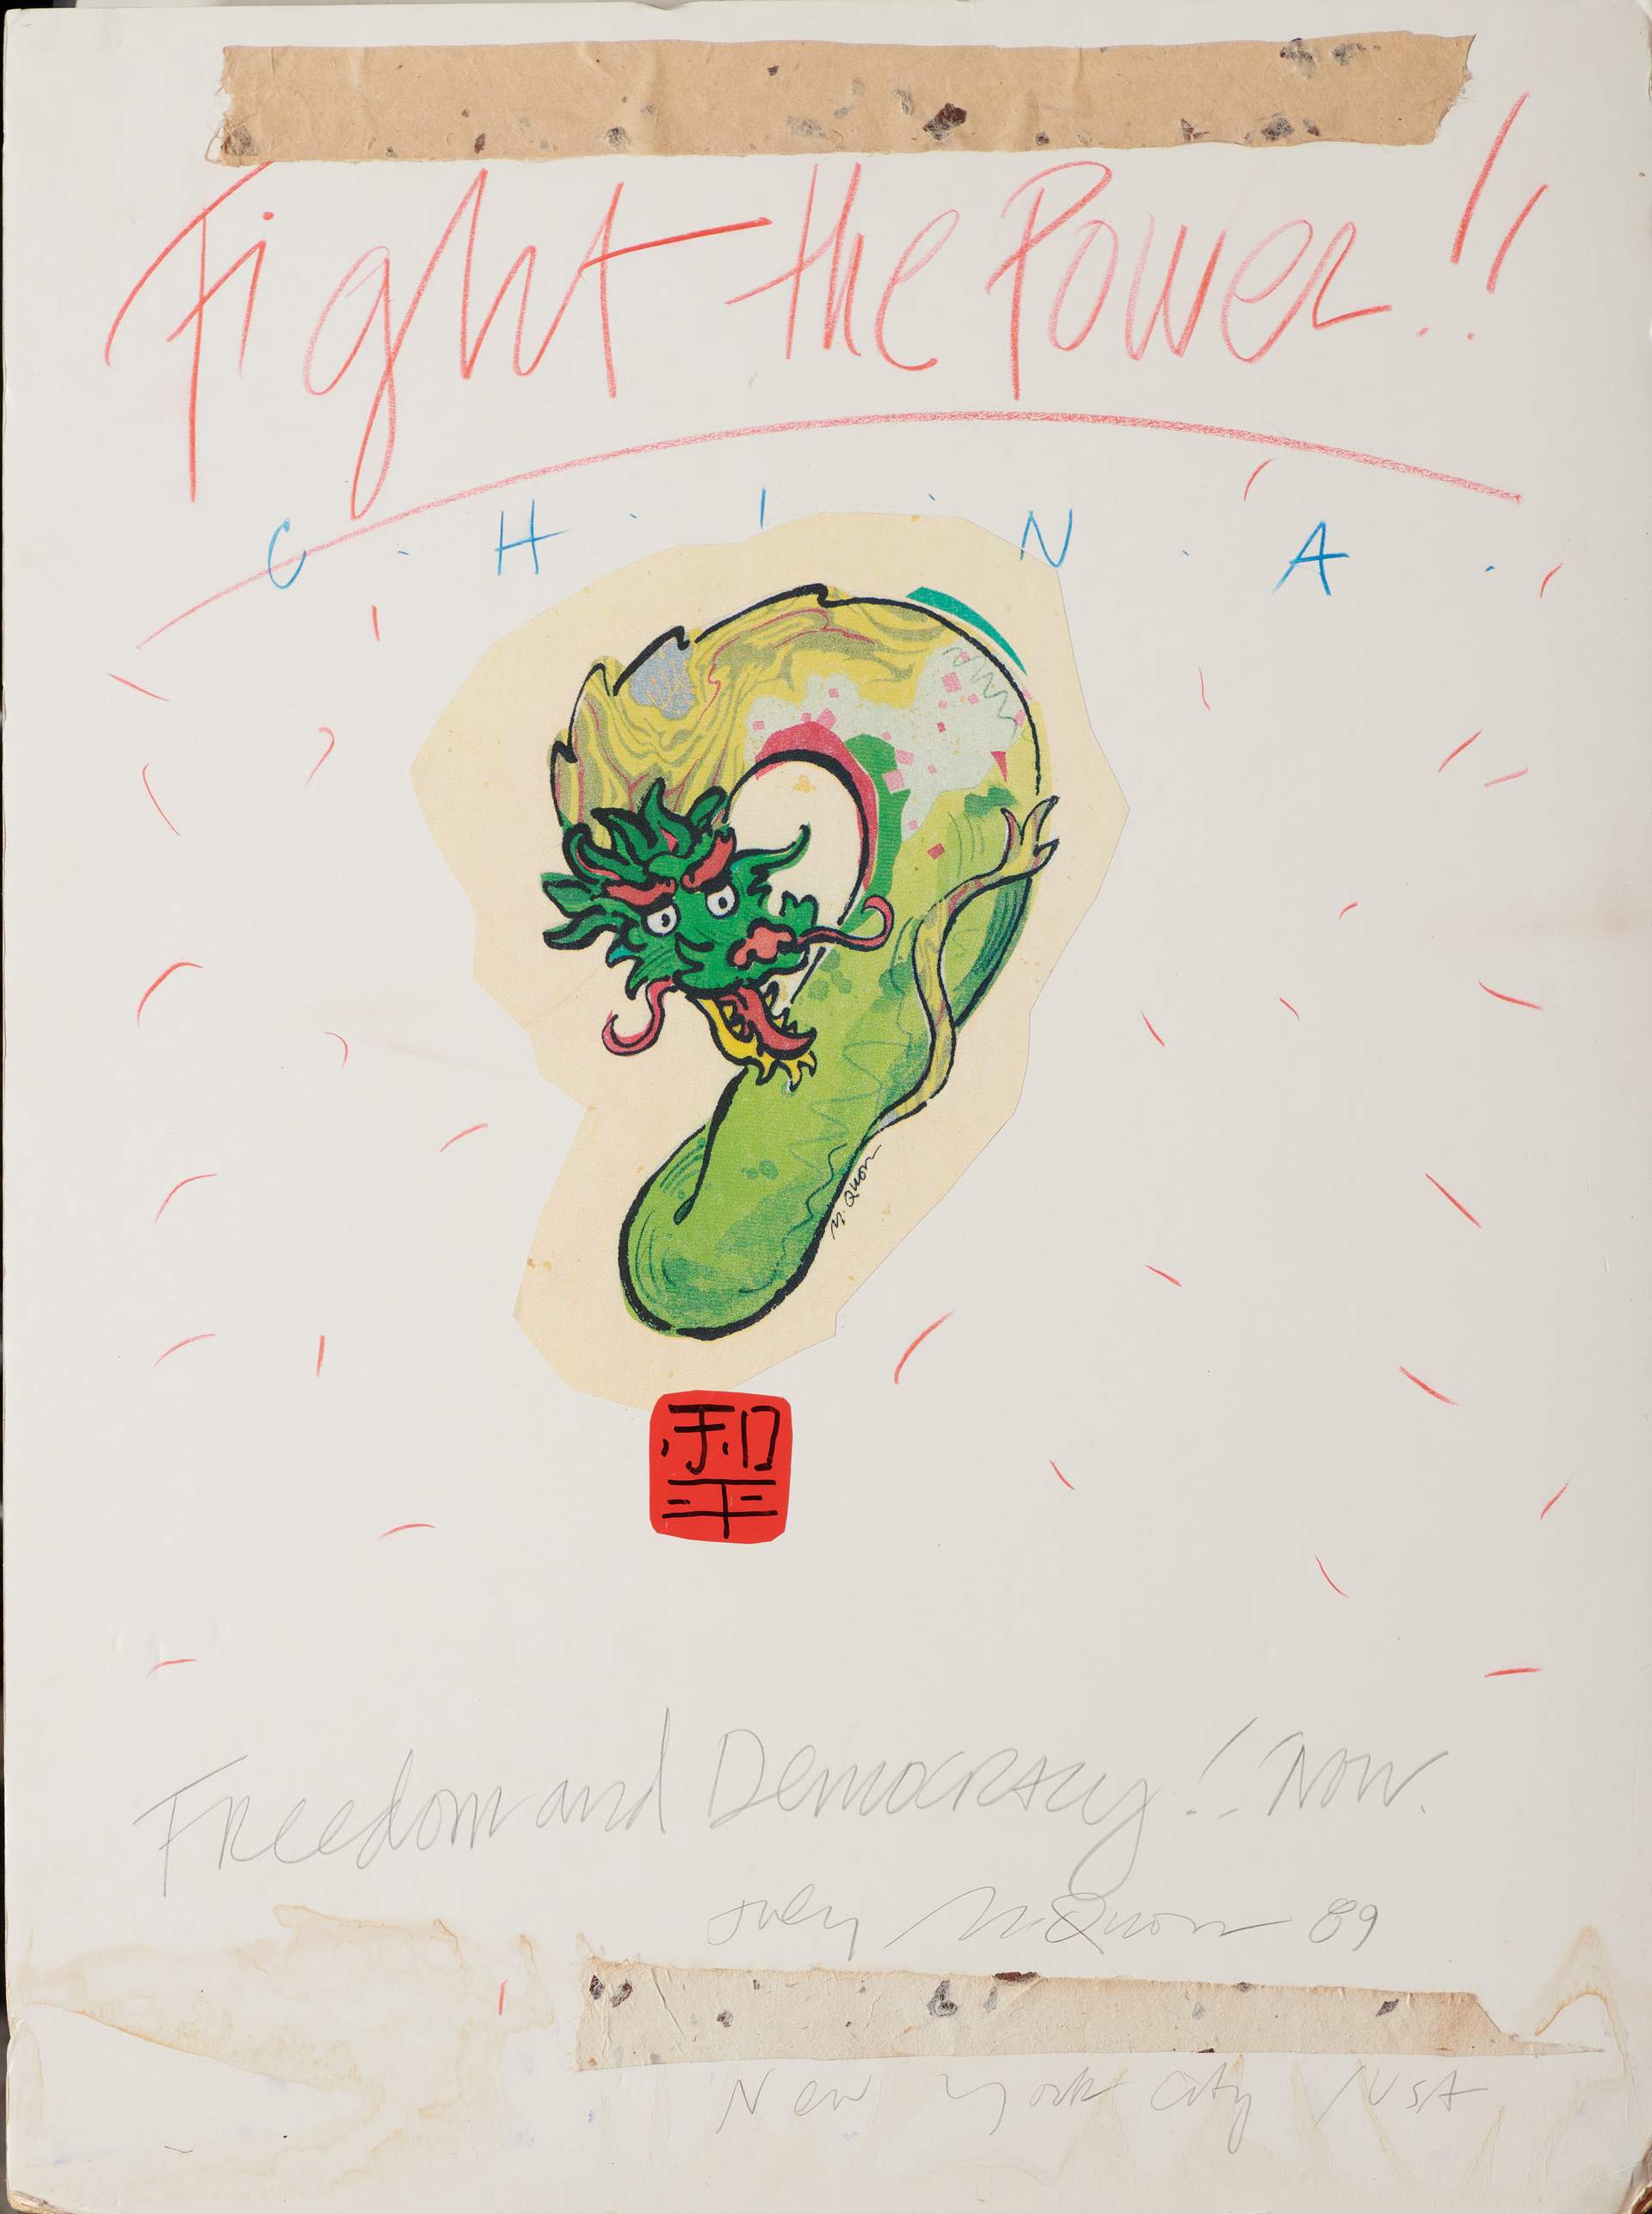 Fight the Power!!
C · H · I · N · A ·
M. Quon
和
平
Freedom and Democracy!! Now.
July M Quon 89
New York City / USA